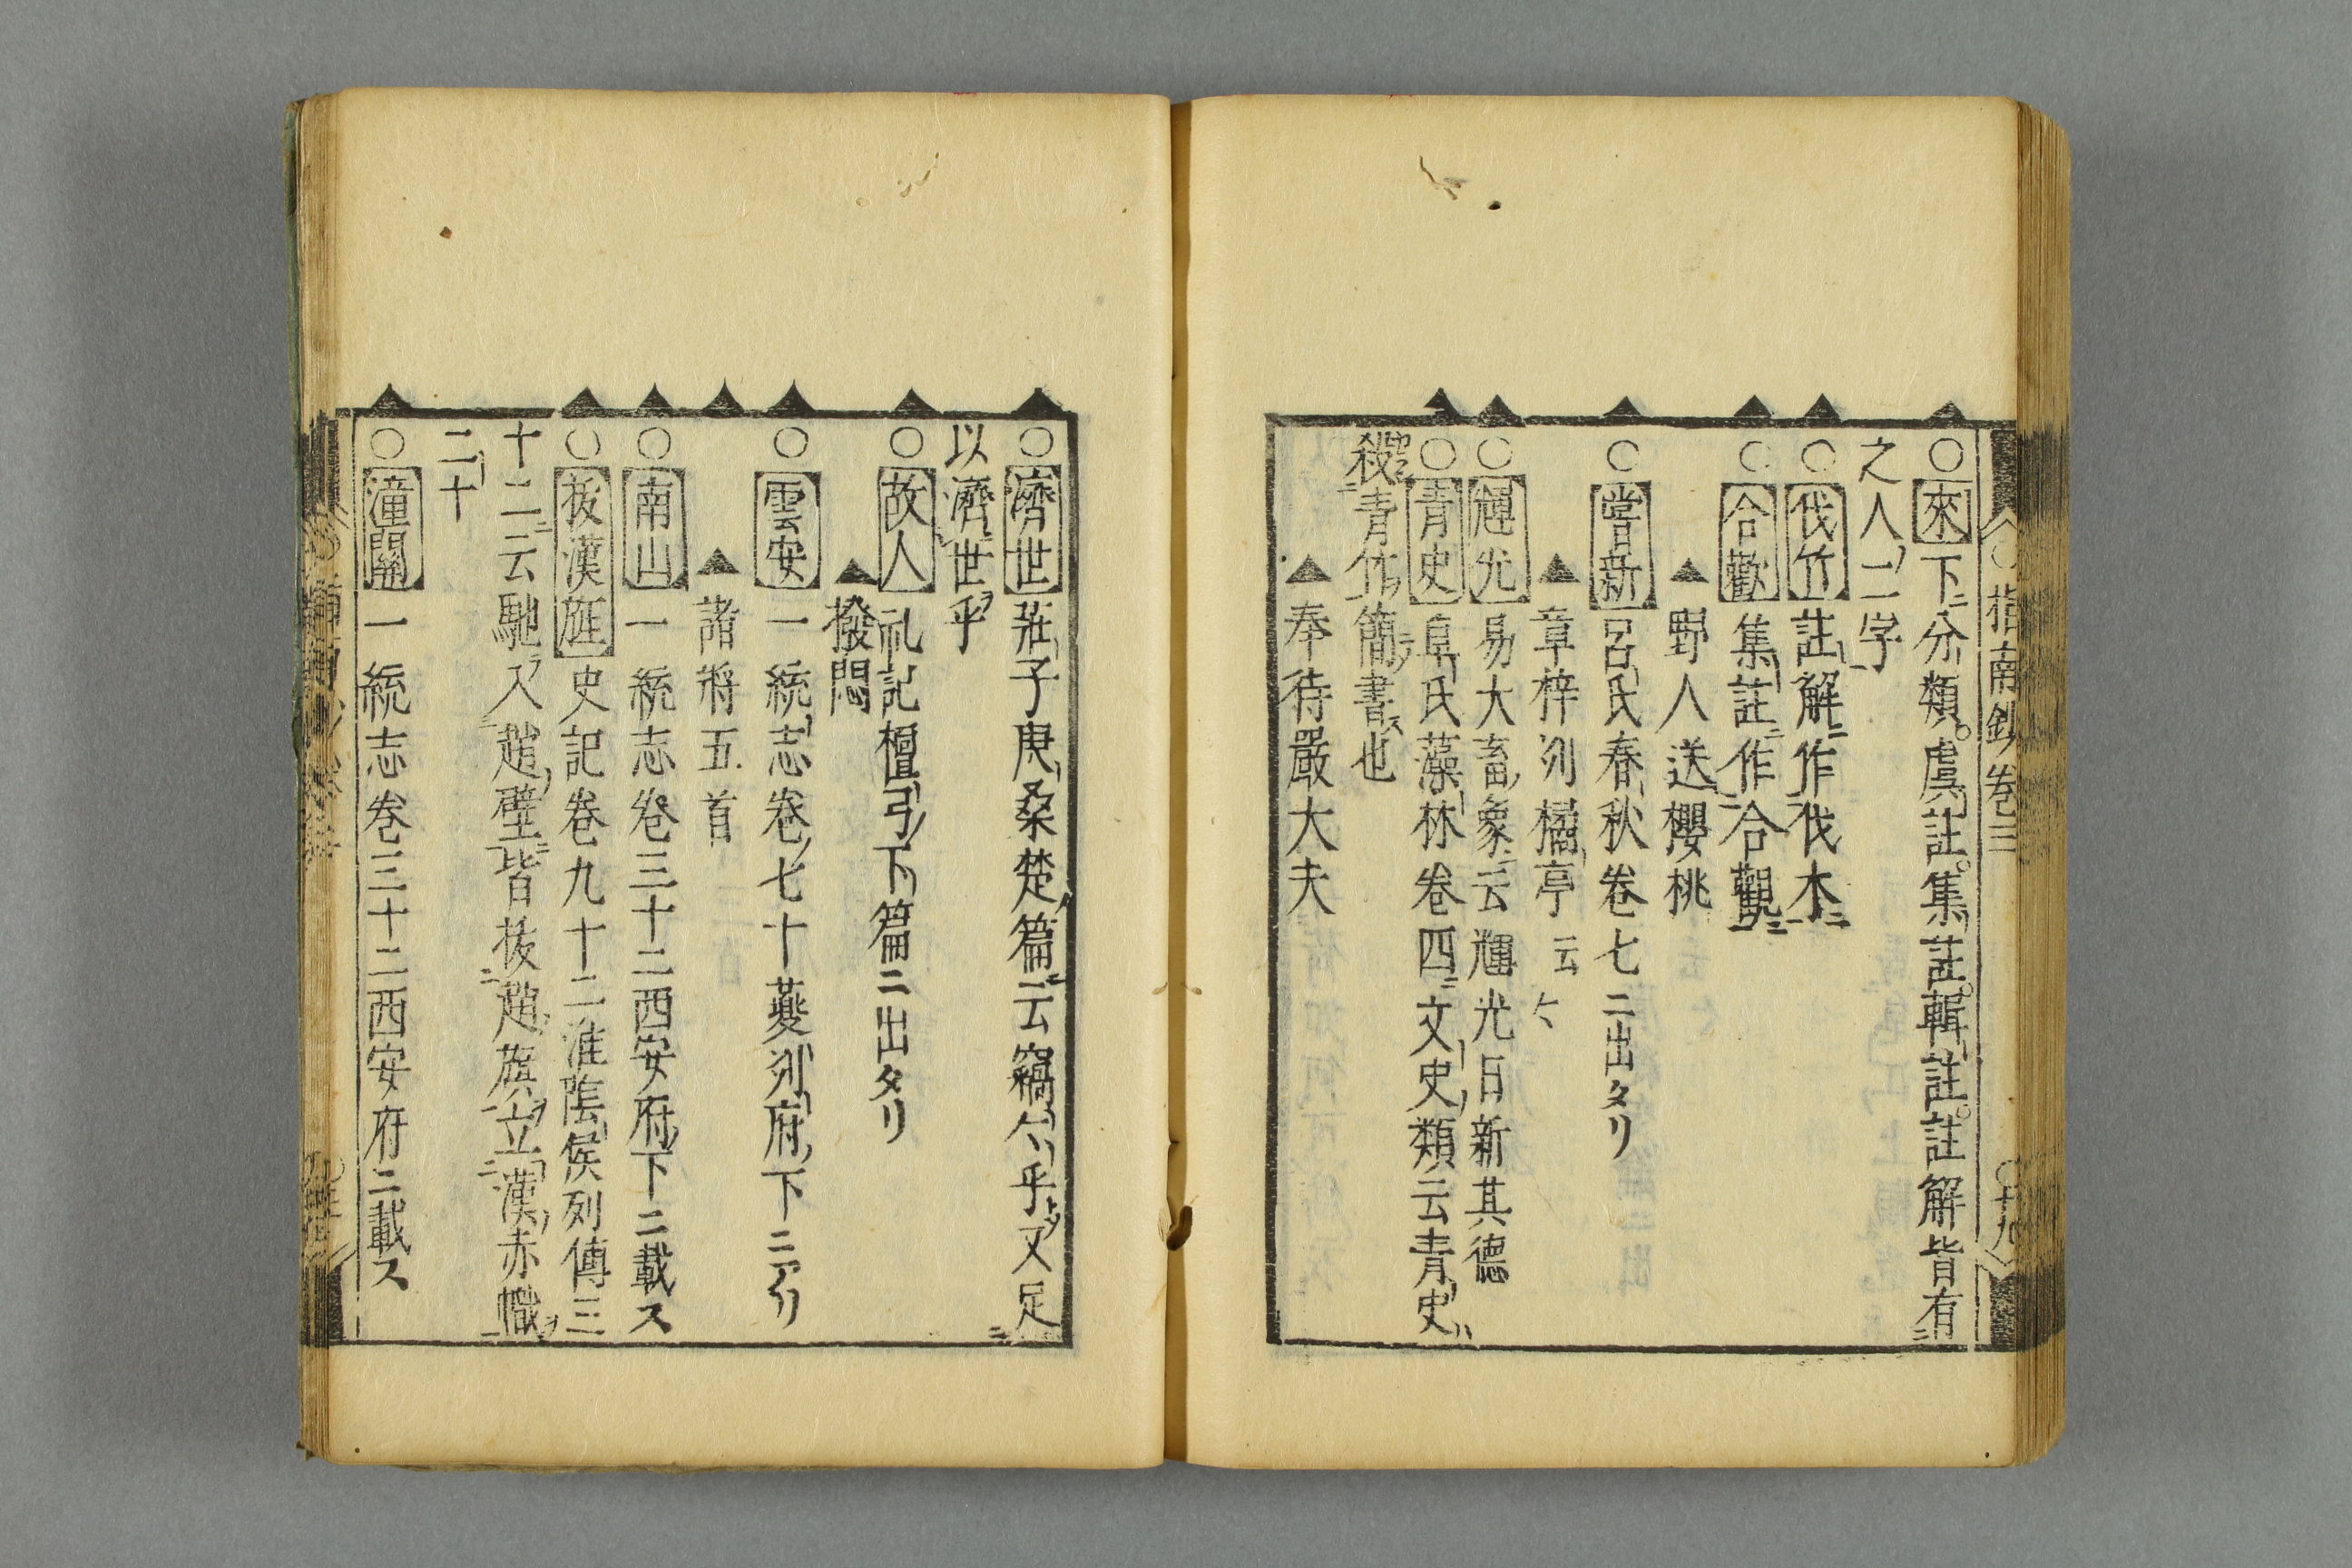 指南鈔卷三
十九
○來下分類。虞註。集註。輯註。註解皆有二
之人ノ二字一
○伐竹註解ニ作伐木ニ
○合歡集註ニ作合觀ニ
▲野人送櫻桃
○嘗新呂氏春秋卷七ニ出タリ
▲章梓州橘亭云々
○輝光易大畜ノ象ニ云輝光日新其德
○青史阜氏藻林卷四ニ文史ノ類云青史ハ
殺青作簡書也
▲奉待嚴大夫
○濟世莊子庚桑楚ノ篇ニ云竊々乎又足
以濟世乎
○故人礼記檀弓ノ下篇ニ出タリ
▲撥悶
○雲安一統志卷ノ七十夔州府ノ下ニアリ
▲諸將五首
○南山一統志卷三十二西安府ノ下ニ載ス
○拔漢旌史記卷九十二淮陰侯列傳三
十二ニ云馳入趙ノ壁ニ皆拔趙旗立漢赤幟
二十
○潼關一統志卷三十二西安府ニ載ス